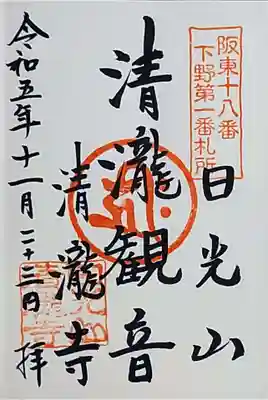 阪東十八番
下野第一番札所
日光山
清瀧観音
清瀧寺
令和五年十一月二十三日 拝